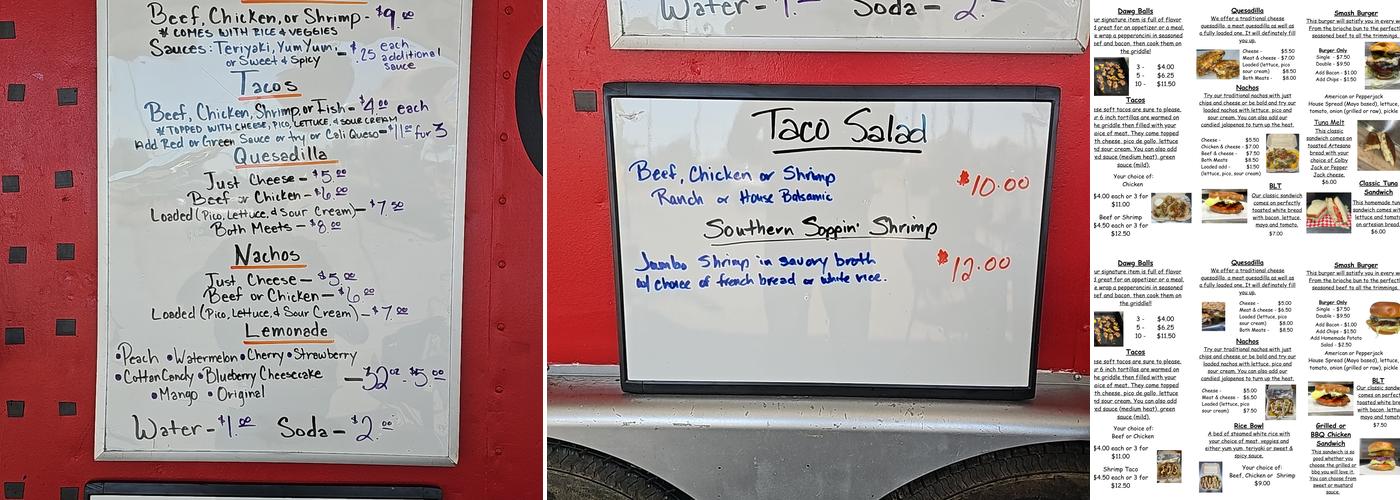 Beef, Chicken, or Shrimp - $9.00
* COMES WITH RICE & VEGGIES
Sauces: Teriyaki, Yum Yum, - $.25 each
or Sweet & Spicy additional
sauce
Tacos
Beef, Chicken, Shrimp, or Fish - $4.00 each
* TOPPED WITH CHEESE, PICO, LETTUCE, & SOUR CREAM
Add Red or Green Sauce or try or Cali Queso - $11.00 for 3
Quesadilla
Just Cheese - $5.00
Beef or Chicken - $6.00
Loaded (Pico, Lettuce, & Sour Cream) - $7.50
Both Meets - $8.00
Nachos
Just Cheese - $5.00
Beef or Chicken - $6.00
Loaded (Pico, Lettuce, & Sour Cream) - $7.00
Lemonade
• Peach • Watermelon • Cherry • Strawberry
• Cotton Candy • Blueberry Cheesecake - 32oz - $5.00
• Mango • Original
Water - $1.00 Soda - $2.00
Water - 1. Soda - 2.
Taco Salad
Beef, Chicken or Shrimp $10.00
Ranch or House Balsamic
Southern Soppin' Shrimp
Jumbo Shrimp in savory broth $12.00
w/ choice of french bread or white rice.
Dawg Balls
ur signature item is full of flavor
great for an appetizer or a meal.
e wrap a pepperoncini in seasoned
eef and bacon, then cook them on
the griddle!!
3 - $4.00
5 - $6.25
10 - $11.50
Tacos
se soft tacos are sure to please.
ur 6 inch tortillas are warmed on
he griddle then filled with your
oice of meat. They come topped
th cheese, pico de gallo, lettuce
nd sour cream. You can also add
ed sauce (medium heat), green
sauce (mild).
Your choice of:
Chicken
$4.00 each or 3 for
$11.00
Beef or Shrimp
$4.50 each or 3 for
$12.50
Quesadilla
We offer a traditional cheese
quesadilla, a meat quesadilla as well as
a fully loaded one. It will definately fill
you up.
Cheese - $5.50
Meat & cheese - $7.00
Loaded (lettuce, pico
sour cream) $8.50
Both Meats - $8.00
Nachos
Try our traditional nachos with just
chips and cheese or be bold and try our
loaded nachos with lettuce, pico and
sour cream. You can also add our
candied jalapenos to turn up the heat.
Cheese - $5.50
Chicken & cheese - $7.00
Beef & cheese - $7.50
Both Meats $8.50
Loaded add - $1.50
(lettuce, pico, sour cream)
BLT
Our classic sandwich
comes on perfectly
toasted white bread
with bacon, lettuce,
mayo and tomato.
$7.00
Smash Burger
This burger will satisfy you in every w
From the brioche bun to the perfect
seasoned beef to all the trimmings.
Burger Only
Single - $7.50
Double - $9.50
Add Bacon - $1.00
Add Chips - $1.50
American or Pepperjack
House Spread (Mayo based), lettuce,
tomato, onion (grilled or raw), pickle
Tuna Melt
This classic
sandwich comes on
toasted Artesano
bread with your
choice of Colby
Jack or Pepper
Jack cheese.
$6.00
Classic Tuna
Sandwich
This homemade tun
sandwich comes wi
lettuce and tomato
on artesian bread.
$6.00
Dawg Balls
ur signature item is full of flavor
great for an appetizer or a meal.
e wrap a pepperoncini in seasoned
eef and bacon, then cook them on
the griddle!!
3 - $4.00
5 - $6.25
10 - $11.50
Tacos
se soft tacos are sure to please.
ur 6 inch tortillas are warmed on
he griddle then filled with your
oice of meat. They come topped
th cheese, pico de gallo, lettuce
nd sour cream. You can also add
ed sauce (medium heat), green
sauce (mild).
Your choice of:
Beef or Chicken
$4.00 each or 3 for
$11.00
Shrimp Taco
$4.50 each or 3 for
$12.50
Quesadilla
We offer a traditional cheese
quesadilla, a meat quesadilla as well as
a fully loaded one. It will definately fill
you up.
Cheese - $5.00
Meat & cheese - $6.50
Loaded (lettuce, pico
sour cream) $8.00
Both Meats - $8.50
Nachos
Try our traditional nachos with just
chips and cheese or be bold and try our
loaded nachos with lettuce, pico and
sour cream. You can also add our
candied jalapenos to turn up the heat.
Cheese - $5.00
Meat & cheese - $6.50
Loaded (lettuce, pico
sour cream) $7.50
Rice Bowl
A bed of steamed white rice with
your choice of meat, veggies and
either yum yum, teriyaki or sweet &
spicy sauce.
Your choice of:
Beef, Chicken or Shrimp
$9.00
Smash Burger
This burger will satisfy you in every w
From the brioche bun to the perfect
seasoned beef to all the trimmings.
Burger Only
Single - $7.50
Double - $9.50
Add Bacon - $1.00
Add Chips - $1.50
Add Homemade Potato
Salad - $2.50
American or Pepperjack
House Spread (Mayo based), lettuce,
tomato, onion (grilled or raw), pickle
BLT
Our classic sandw
comes on perfect
toasted white bre
with bacon, lettuc
mayo and tomato
$7.50
Grilled or
BBQ Chicken
Sandwich
This sandwich is so
good whether you
choose the grilled or
bbq you will love it.
You can choose from
sweet or mustard
sauce.